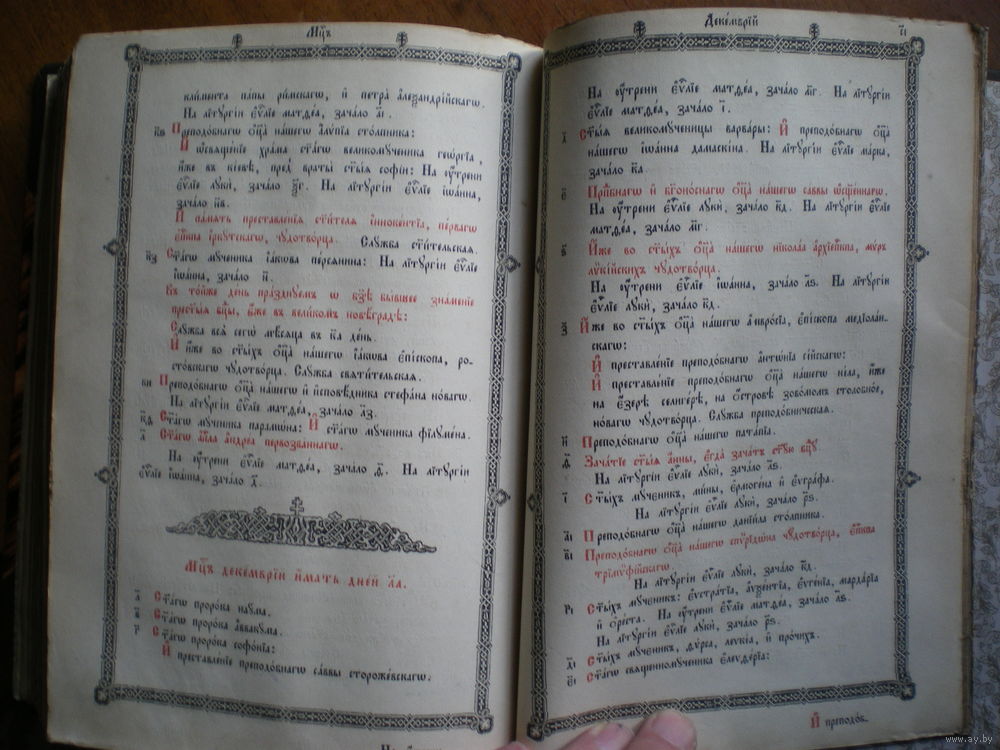 Мц҃ъ
кли́мента па́пы ри́мскагѡ, и҆ петра̀ а҆леѯандрі́йскагѡ.
На лїтꙋргі́и є҆ѵⷢ҇лїе матѳе́а, зача́ло а҃і.
к҃ѕ Преподо́бнагѡ ѻ҆тц҃а̀ на́шегѡ а҆лѵ́пїа сто́лпника:
И҆ ѡ҆свѧще́нїе хра́ма ст҃а́гѡ великомꙋ́ченика геѡ́ргїа,
и҆́же въ кі́евѣ, пред̾ враты̀ ст҃ы́ѧ софі́и: На ᲂу҆́трени
є҆ѵⷢ҇лїе лꙋкѝ, зача́ло ѯ҃г. На лїтꙋргі́и є҆ѵⷢ҇лїе і҆ѡа́нна,
зача́ло н҃в.
И҆ па́мѧть преставле́нїѧ ст҃и́телѧ і҆нноке́нтїа, пе́рвагѡ
є҆пⷭ҇кпа і҆ркꙋ́тскагѡ, чꙋдотво́рца. Слꙋ́жба ст҃и́тельскаѧ.
к҃з Ст҃а́гѡ мꙋ́ченика і҆а́кѡва персѧ́нина: На лїтꙋргі́и є҆ѵⷢ҇лїе
і҆ѡа́нна, зача́ло н҃.
Въ то́йже де́нь пра́зднꙋемъ ѡ҆ бж҃ѣ бы́вшее зна́менїе
прест҃ы́ѧ бцⷣы, є҆́же въ вели́комъ новѣ́градѣ:
Слꙋ́жба всѧ̀ сегѡ̀ мѣ́сѧца въ к҃а де́нь.
И҆ и҆́же во ст҃ы́хъ ѻ҆тц҃а̀ на́шегѡ і҆а́кѡва є҆пі́скопа, ро-
сто́вскагѡ чꙋдотво́рца. Слꙋ́жба свѧти́тельскаѧ.
к҃и Преподо́бнагѡ ѻ҆тц҃а̀ на́шегѡ и҆ и҆сповѣ́дника стефа́на но́вагѡ.
На лїтꙋргі́и є҆ѵⷢ҇лїе матѳе́а, зача́ло л҃з.
к҃ѳ Ст҃а́гѡ мꙋ́ченика парамѡ́на: И҆ ст҃а́гѡ мꙋ́ченика фїлꙋме́на.
л҃ Ст҃а́гѡ а҆пⷭ҇ла а҆ндре́а первозва́ннагѡ.
На ᲂу҆́трени є҆ѵⷢ҇лїе матѳе́а, зача́ло ѳ҃. На лїтꙋргі́и
є҆ѵⷢ҇лїе і҆ѡа́нна, зача́ло д҃.
Мц҃ъ деке́мврїй и҆́мать дне́й л҃а.
а҃ Ст҃а́гѡ проро́ка наꙋ́ма.
в҃ Ст҃а́гѡ проро́ка а҆ввакꙋ́ма.
г҃ Ст҃а́гѡ проро́ка софо́нїа:
И҆ преставле́нїе преподо́бнагѡ са́ввы стороже́вскагѡ.
Деке́мврїй
На ᲂу҆́трени є҆ѵⷢ҇лїе матѳе́а, зача́ло м҃г. На лїтꙋргі́и
є҆ѵⷢ҇лїе матѳе́а, зача́ло і҃.
д҃ Ст҃ы́ѧ великомꙋ́ченицы варва́ры: И҆ преподо́бнагѡ ѻ҆тц҃а̀
на́шегѡ і҆ѡа́нна дамаски́на. На лїтꙋргі́и є҆ѵⷢ҇лїе ма́рка,
зача́ло к҃а.
є҃ Прпⷣбнагѡ и҆ бг҃оно́снагѡ ѻ҆тц҃а̀ на́шегѡ са́ввы ѡ҆сщ҃е́ннагѡ.
На ᲂу҆́трени є҆ѵⷢ҇лїе лꙋкѝ, зача́ло к҃д. На лїтꙋргі́и є҆ѵⷢ҇лїе
матѳе́а, зача́ло м҃г.
ѕ҃ И҆́же во ст҃ы́хъ ѻ҆тц҃а̀ на́шегѡ нїкола́а а҆рхїепⷭ҇кпа, мѵр
лѷкі́йскихъ чꙋдотво́рца.
На ᲂу҆́трени є҆ѵⷢ҇лїе і҆ѡа́нна, зача́ло л҃ѕ. На лїтꙋргі́и
є҆ѵⷢ҇лїе лꙋкѝ, зача́ло к҃д.
з҃ И҆́же во ст҃ы́хъ ѻ҆тц҃а̀ на́шегѡ а҆мвро́сїа, є҆пі́скопа медїола́н-
скагѡ:
И҆ преставле́нїе преподо́бнагѡ а҆нтѡ́нїа сі́йскагѡ:
И҆ преставле́нїе преподо́бнагѡ ѻ҆тц҃а̀ на́шегѡ ні́ла, и҆́же
на є҆́зерѣ селиге́рѣ, на ѻ҆́стровѣ зово́момъ столо́бное,
но́вагѡ чꙋдотво́рца. Слꙋ́жба преподо́бническаѧ.
и҃ Преподо́бнагѡ ѻ҆тц҃а̀ на́шегѡ пата́пїа.
ѳ҃ Зача́тїе ст҃ы́ѧ а҆́нны, є҆гда̀ зача́тъ ст҃ꙋ́ю бцⷣꙋ.
На лїтꙋргі́и є҆ѵⷢ҇лїе лꙋкѝ, зача́ло л҃ѕ.
і҃ Ст҃ы́хъ мꙋ́ченикъ, ми́ны, є҆рмоге́на и҆ є҆ѵгра́фа.
На лїтꙋргі́и є҆ѵⷢ҇лїе лꙋкѝ, зача́ло р҃ѕ.
а҃і Преподо́бнагѡ ѻ҆тц҃а̀ на́шегѡ данїи́ла сто́лпника.
в҃і Преподо́бнагѡ ѻ҆тц҃а̀ на́шегѡ спѷрїдѡ́на чꙋдотво́рца, є҆пⷭ҇кпа
трїмѷфі́йскагѡ.
На лїтꙋргі́и є҆ѵⷢ҇лїе лꙋкѝ, зача́ло к҃д.
г҃і Ст҃ы́хъ мꙋ́ченикъ: є҆ѵстра́тїа, а҆ѵѯе́нтїа, є҆ѵге́нїа, мардарі́а
и҆ ѻ҆ре́ста. На ᲂу҆́трени є҆ѵⷢ҇лїе матѳе́а, зача́ло л҃ѕ.
На лїтꙋргі́и є҆ѵⷢ҇лїе лꙋкѝ, зача́ло р҃ѕ.
д҃і Ст҃ы́хъ мꙋ́ченикъ, ѳѵ́рса, леѵкі́а, и҆ про́чихъ.
є҃і Ст҃а́гѡ свѧщенномꙋ́ченика є҆леѵѳе́рїа:
И҆ преподо́б.
www.ay.by